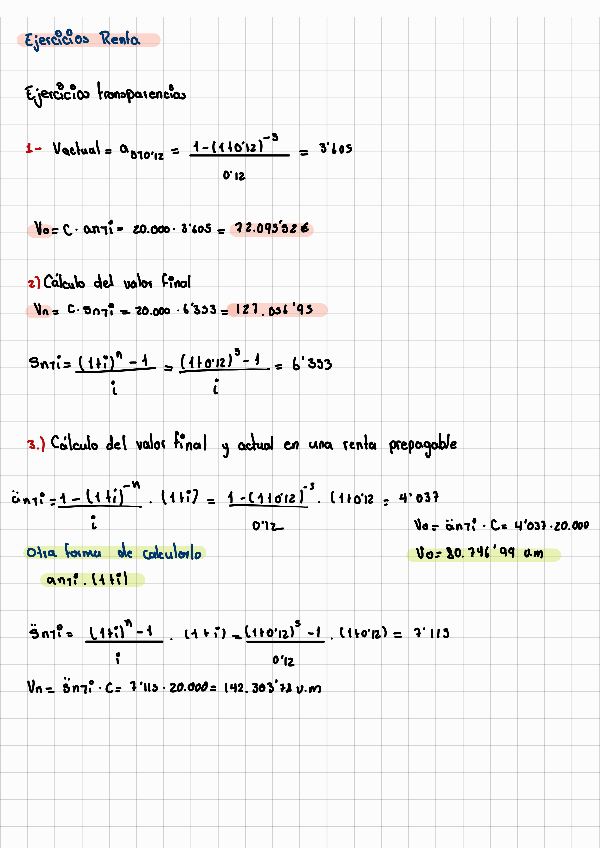 Ejercicios Renta
Ejercicios transparencias
1- Vactual = a5⏋0'12 = 1-(1+0'12)^-5 / 0'12 = 3'605
Vo = C · an⏋i = 20.000 · 3'605 = 72.095'526
2) Cálculo del valor final
Vn = C · Sn⏋i = 20.000 · 6'353 = 127.056'95
Sn⏋i = (1+i)^n - 1 / i = (1+0'12)^5 - 1 / i = 6'353
3.) Cálculo del valor final y actual en una renta prepagable
än⏋i = 1-(1+i)^-n / i · (1+i) = 1-(1+0'12)^-5 / 0'12 · (1+0'12 = 4'037
Vo = än⏋i · C = 4'037 · 20.000
Otra forma de calcularlo
Vo = 80.746'99 um
an⏋i · (1+i)
S̈n⏋i = (1+i)^n - 1 / i · (1+i) = (1+0'12)^5 - 1 / 0'12 · (1+0'12) = 7'115
Vn = S̈n⏋i · C = 7'115 · 20.000 = 142.303'78 u.m